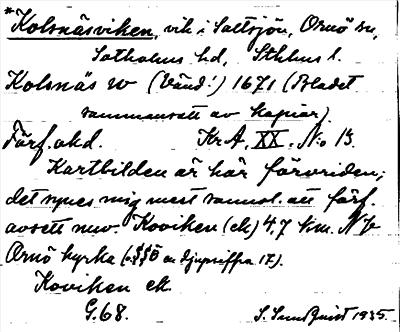 *Kolsnäsviken, vik i Saltsjön, Ornö sn,
Sotholms hd, Sthlms l.
Kolsnäs w (Vänd!) 1671 (Bladet
sammansatt av kopior)
Förf. okd. Kr A, XX. No 13.
Kartbilden är här förvriden;
det synes mig mest sannol. att förf.
avsett nuv. Koviken (ek) 4.7 km. N b
Ornö kyrka (. en djupsiffra 17).
Koviken ek
G.68. S. Sundquist 1935.